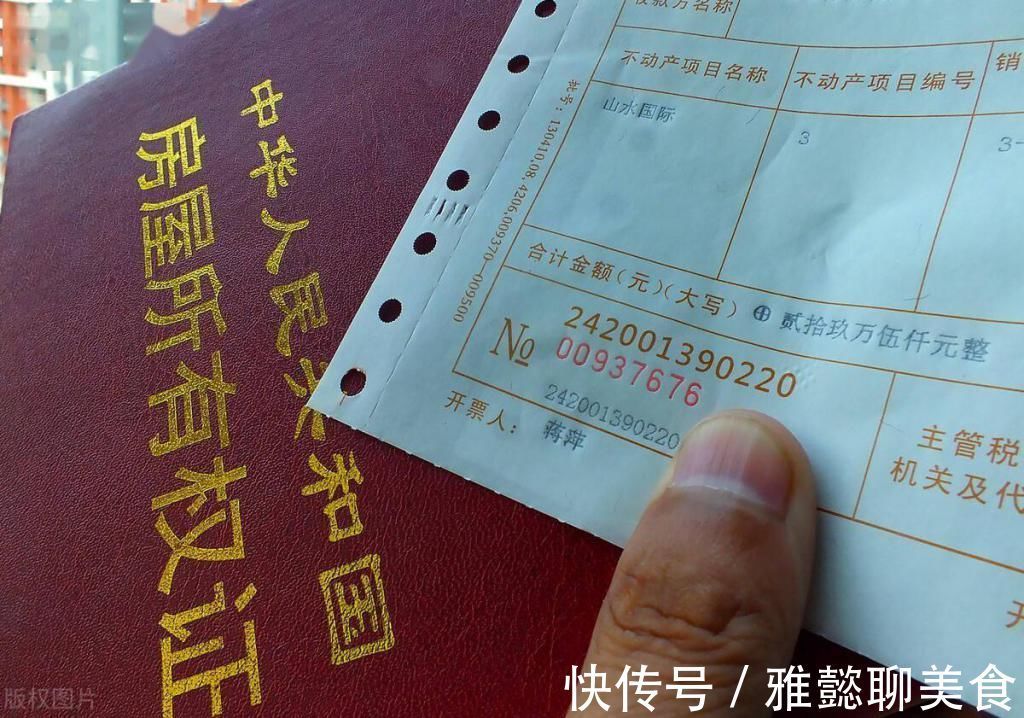 中华人民共和国
房屋所有权证
收款方名称
不动产项目名称
不动产项目编号
销
山水国际
3
3-
批号：130410.08.4206.009370-009500
合计金额（元）（大写）
⊕ 贰拾玖万伍仟元整
242001390220
№ 00937676
242001390220
开票人：
蒋萍
主管税
机关及代
开
版权图片
快传号 / 雅懿聊美食